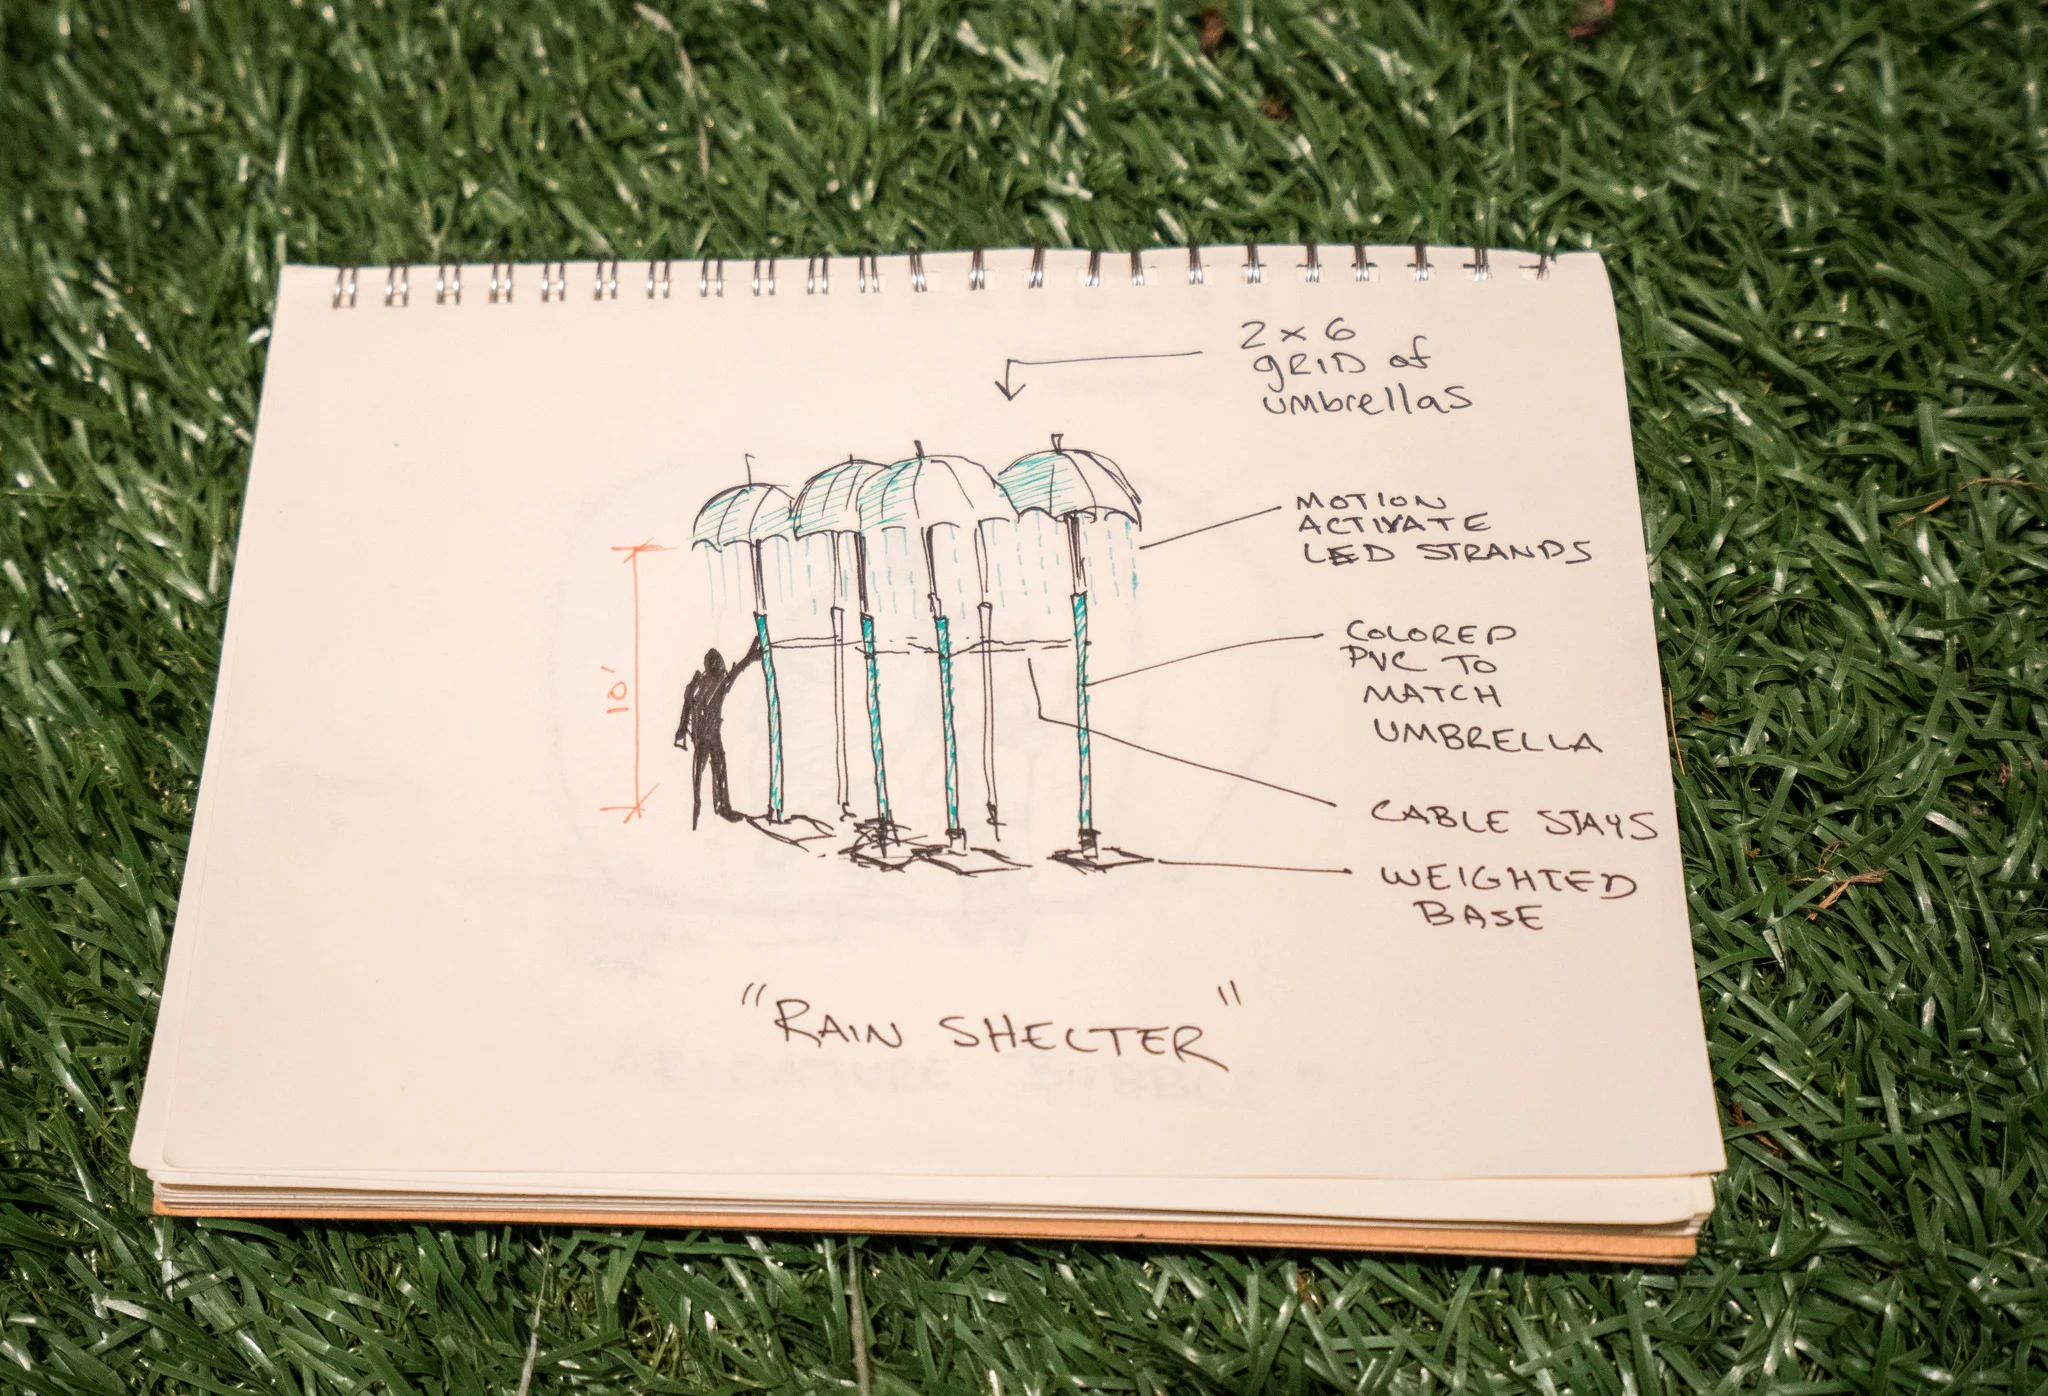 2 x 6
GRID of
umbrellas
MOTION
ACTIVATE
LED STRANDS
COLORED
PVC TO
MATCH
UMBRELLA
CABLE STAYS
WEIGHTED
BASE
10'
"RAIN SHELTER"
CARICATURE BUBBLE"